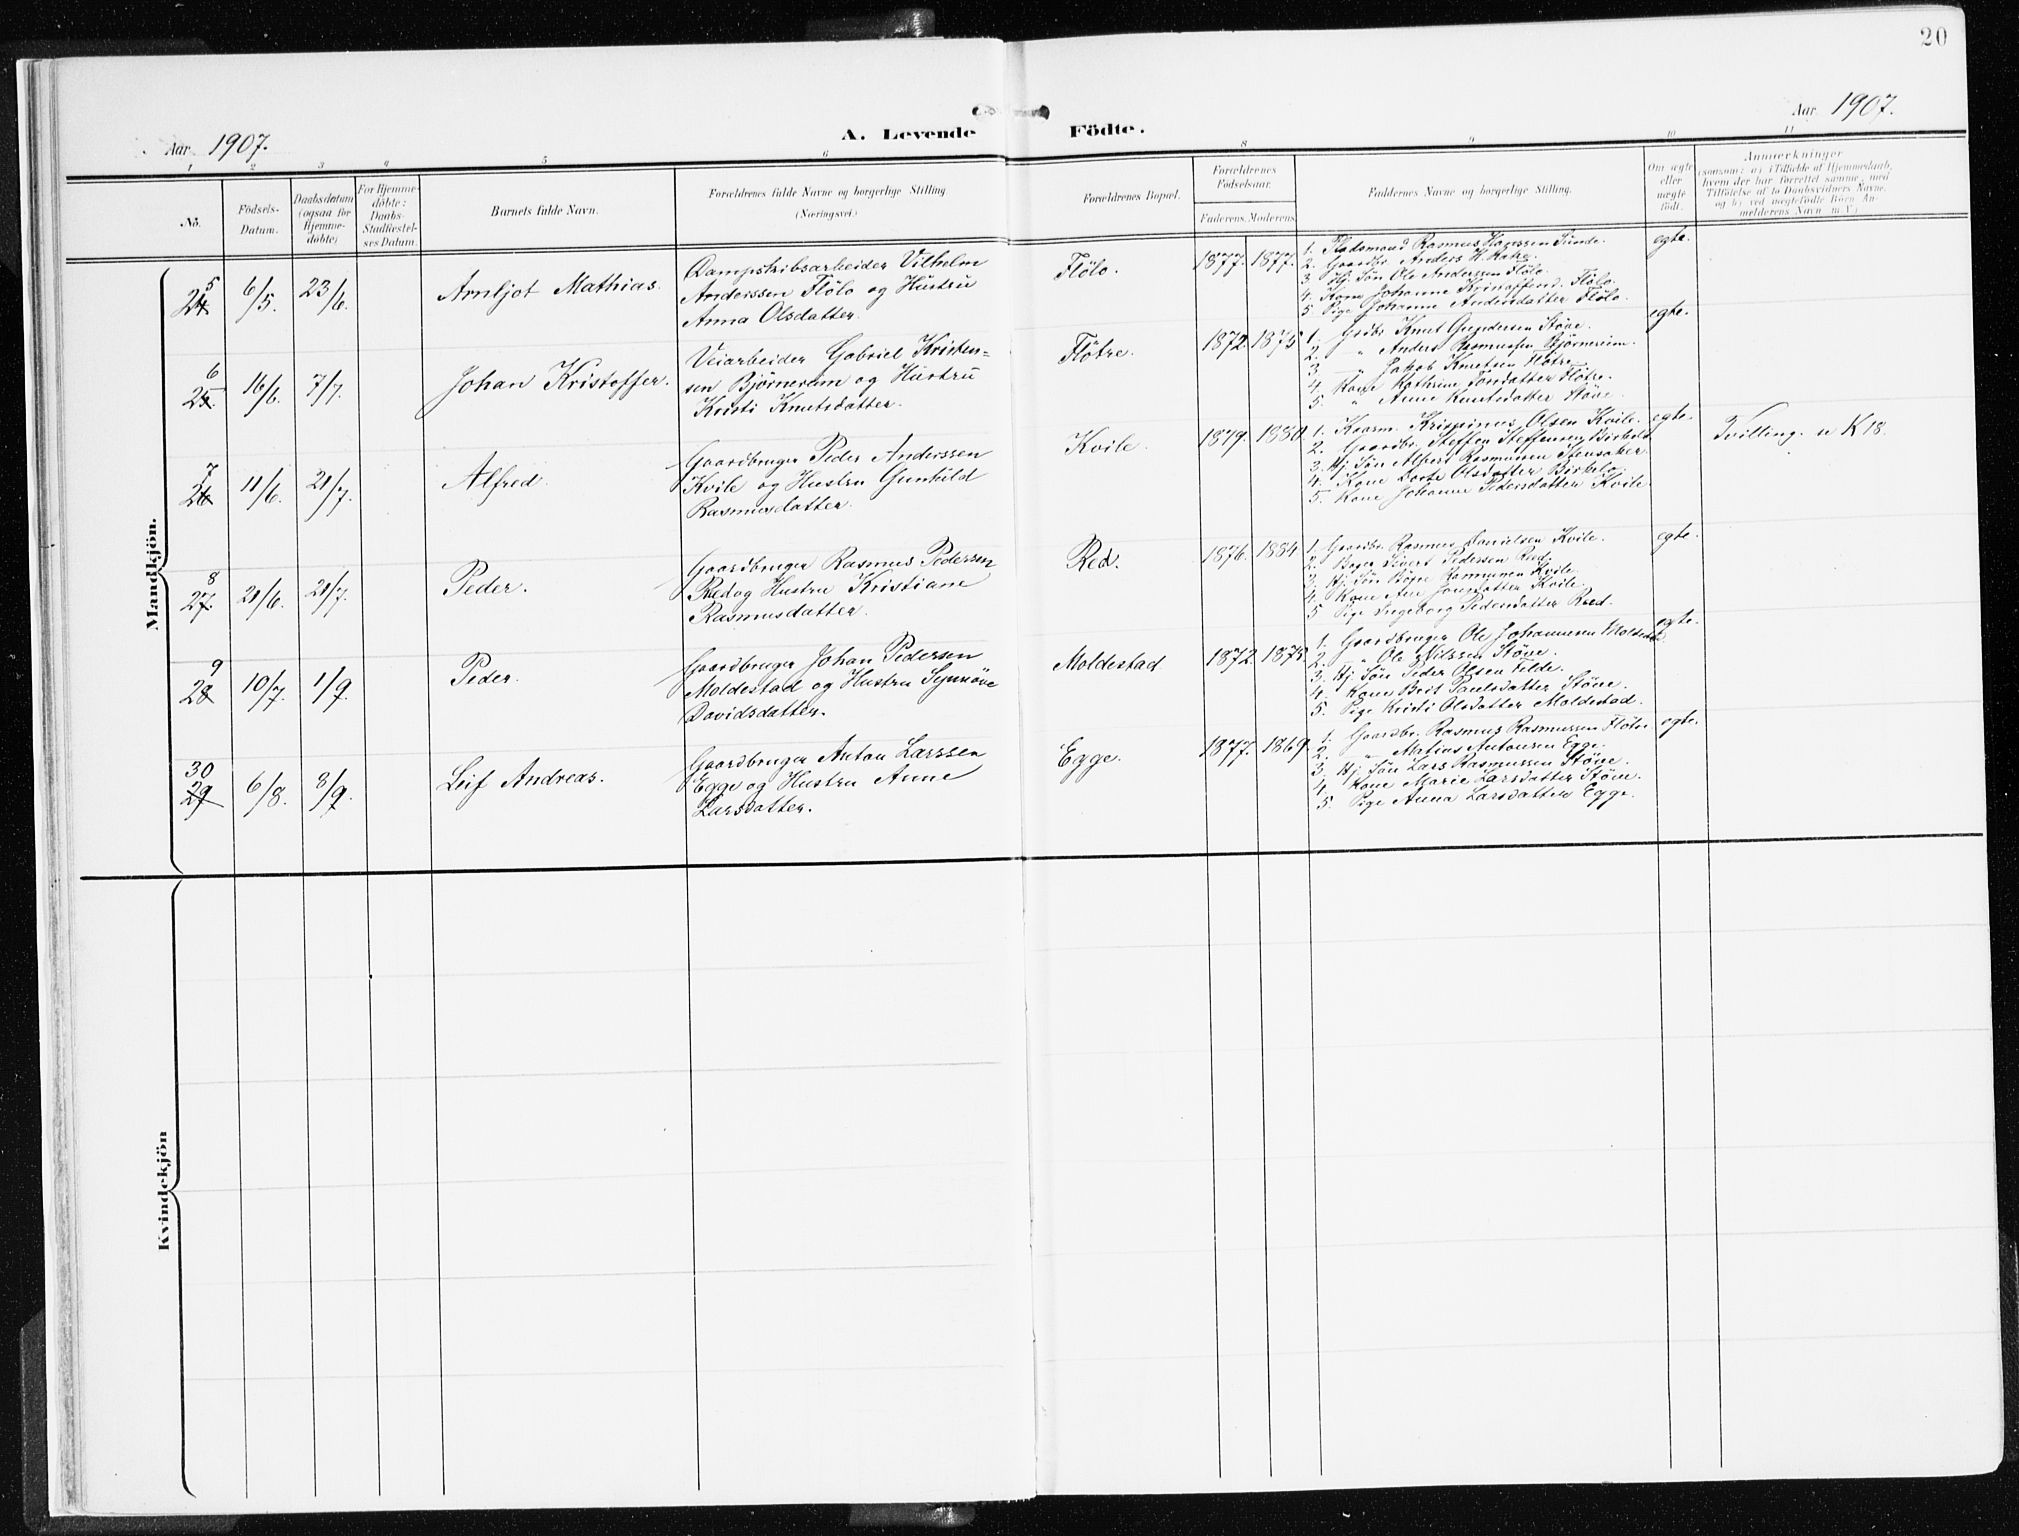 20
Aar 1907.
A. Levende Födte.
Aar 1907.
1 2 3 4 5 6 8 9 10 11
No.
Födsels-Datum.
Daabsdatum (ogsaa for Hjemme-döbte)
For Hjemme-döbte: Daabs-Stadfæstel-ses Datum.
Barnets fulde Navn.
Forældrenes fulde Navne og borgerlige Stilling (Næringsvei.)
Forældrenes Bopæl.
Forældrenes Födselsaar.
Faderens. Moderens.
Faddernes Navne og borgerlige Stilling.
Om ægte eller uægte födt.
Anmærkninger
(saasom: a) i Tilfælde af Hjemmedaab,
hvem der har forrettet samme, med
Tilföielse af to Daabsvidners Navne.
og b) ved uægtefödte Börn An-
melderens Navn m. V.)
Mandkjön.
5
24 6/5. 23/6. Arnljot Mathias.
Dampskibsarbeider Vilhelm
Anderssen Flölo og Hustru
Anna Olsdatter.
Flölo. 1877. 1877.
1. Rasmus Hanssen Sunde.
2. Gaardbr. Anders H.
3. Hj. Sön Ole Anderssen Flölo.
4. Kone Johanne Flölo.
5. Pige Johanne Andersdatter Flölo.
egte.
6
25. 16/6. 7/7. Johan Kristoffer.
Veiarbeider Gabriel Kristen=
sen Bjørnerem og Hustru
Kristi Knutsdatter.
Flötre. 1872. 1875
1. Grdbr. Knut Gundersen Stöve.
2. " Anders Rasmussen Bjørnerem.
3 " Jakob Knutsen Flötre.
4. Kone Kathrine Flötre.
5. " Anne Knutsdatter Stöve.
egte.
7
26 11/6. 21/7. Alfred.
Gaardbruger Peder Anderssen
Kvile og Hustru Gunhild
Rasmusdatter.
Kvile. 1879. 1880.
1. Krispinus Olsen Kvile.
2. Gaardbr. Steffen Steffensen Birkelo
3. Hj. Sön Albert Rasmussen Stensaker.
4. Kone Dorte Olsdatter Birkelo.
5. Kone Johanne Pedersdatter Kvile.
egte.
Tvilling. n K 18.
8
27. 21/6. 21/7. Peder.
Gaardbruger Rasmus Pedersen
Red og Hustru Kristiane
Rasmusdatter.
Red. 1876. 1884.
1. Gaardbr. Rasmus Danielsen Kvile.
2. Sivert Pedersen Reed.
3. Hj. Sön Rasmussen Kvile.
4. Kone Ane Jonsdatter Kvile.
5 Pige Ingeborg Pedersdatter Reed.
egte.
9
28 10/7. 1/9. Peder.
Gaardbruger Johan Pedersen
Moldestad og Hustru Synnöve
Davidsdatter.
Moldestad 1872. 1875.
1. Gaardbruger Ole Johannesen Moldestad
2. " Ole Nilssen Stöve.
3. Hj. Sön Peder Olsen Felde.
4. Kone Berit Paulsdatter Stöve.
5. Pige Kristi Olsdatter Moldestad.
egte.
30
29 6/8. 8/9. Leif Andreas.
Gaardbruger Anton Larssen
Egge og Hustru Anne
Larsdatter.
Egge. 1877. 1869.
1. Gaardbr. Rasmus Rasmussen Flöte
2. " Matias Antonsen Egge.
3. Hj. Sön Lars Rasmussen Stöve.
4. Kone Marie Larsdatter Stöve.
5. Pige Anna Larsdatter Egge.
egte.
Kvindekjön